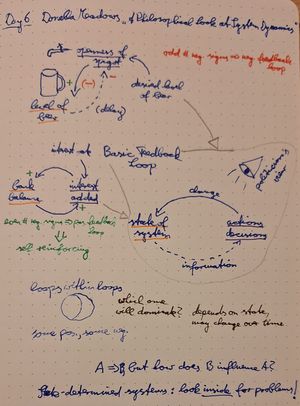 Day 6 Donella Meadows "A Philosophical look at System Dynamics"
openness of
spigot
odd # neg. signs => neg. feedback
loop
+ (−) −
level of
beer
(delay)
desired level
of beer
Basic Feedback
Loop
politician's
view
+
bank
balance
interest
added
+
change
even # neg signs => pos feedback
loop
self reinforcing
state of
system
actions
decisions
information
loops within loops
which one
will dominate?
depends on state,
may change over time
some pos, some neg.
A => B But how does B influence A?
determined systems: look inside for problems!